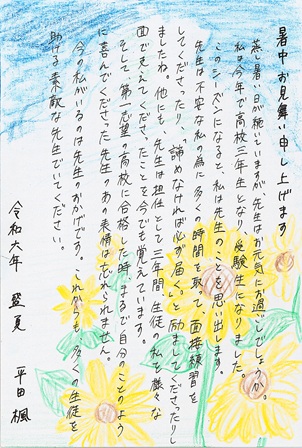 暑中お見舞い申し上げます
蒸し暑い日が続いていますが、先生はお元気にお過ごしでしょうか。
私は今年で高校三年生となり、受験生になりました。
このシーズンになると、私は先生のことを思い出します。
先生は不安な私の為に多くの時間を取って、面接練習を
してくださったり、「諦めなければ必ず届く。」と励ましてくださったりし
ましたね。他にも、先生は担任として三年間、生徒の私を様々な
面で支えてくださったことを今でも覚えています。
そして、第一志望の高校に合格した時、まるで自分のことのよう
に喜んでくださった先生のあの表情は忘れられません。
今の私がいるのは先生のおかげです。これからも、多くの生徒を
助ける素敵な先生でいてください。
令和六年 盛夏
平田楓